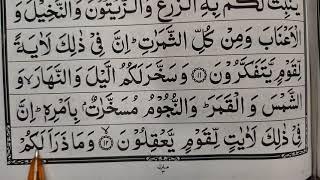 يُنْۢبِتُ لَكُمْ بِهِ الزَّرْعَ وَالزَّيْتُوْنَ وَالنَّخِيْلَ وَ
الْاَعْنَابَ وَمِنْ كُلِّ الثَّمَرٰتِ ؕ اِنَّ فِيْ ذٰلِكَ لَاٰيَةً
لِّقَوْمٍ يَّتَفَكَّرُوْنَ ۝۱۱ وَسَخَّرَ لَكُمُ الَّيْلَ وَالنَّهَارَ ۙ وَ
الشَّمْسَ وَالْقَمَرَ ؕ وَالنُّجُوْمُ مُسَخَّرٰتٌۢ بِاَمْرِهٖ ؕ اِنَّ
فِيْ ذٰلِكَ لَاٰيٰتٍ لِّقَوْمٍ يَّعْقِلُوْنَ ۝۱۲ وَمَا ذَرَاَ لَكُمْ